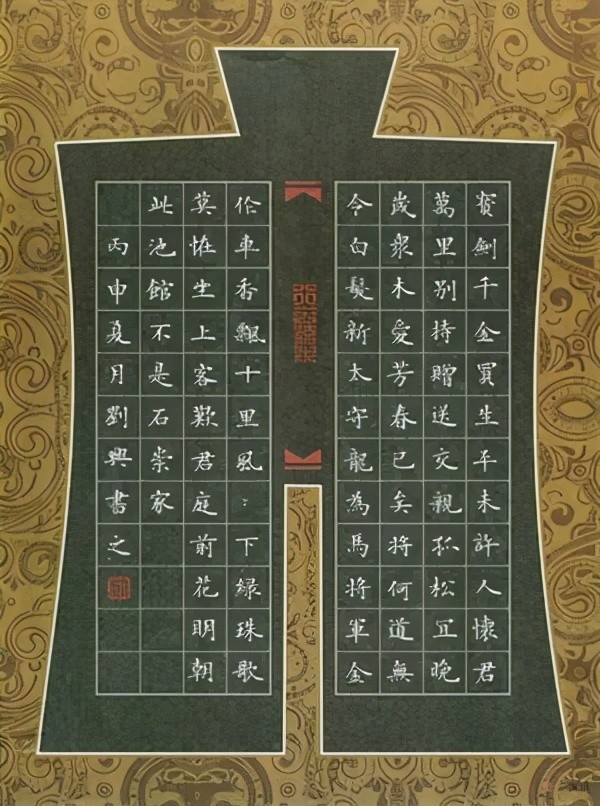 寳劍千金買生平未許人懷君
萬里別持贈送交親孤松冝晚
歲衆木愛芳春已矣將何道無
令白髮新太守龍為馬將軍金
作車香飄十里風：下緑珠歌
莫恠坐上客歎君庭前花明朝
此池館不是石崇家
丙申夏月劉興書之